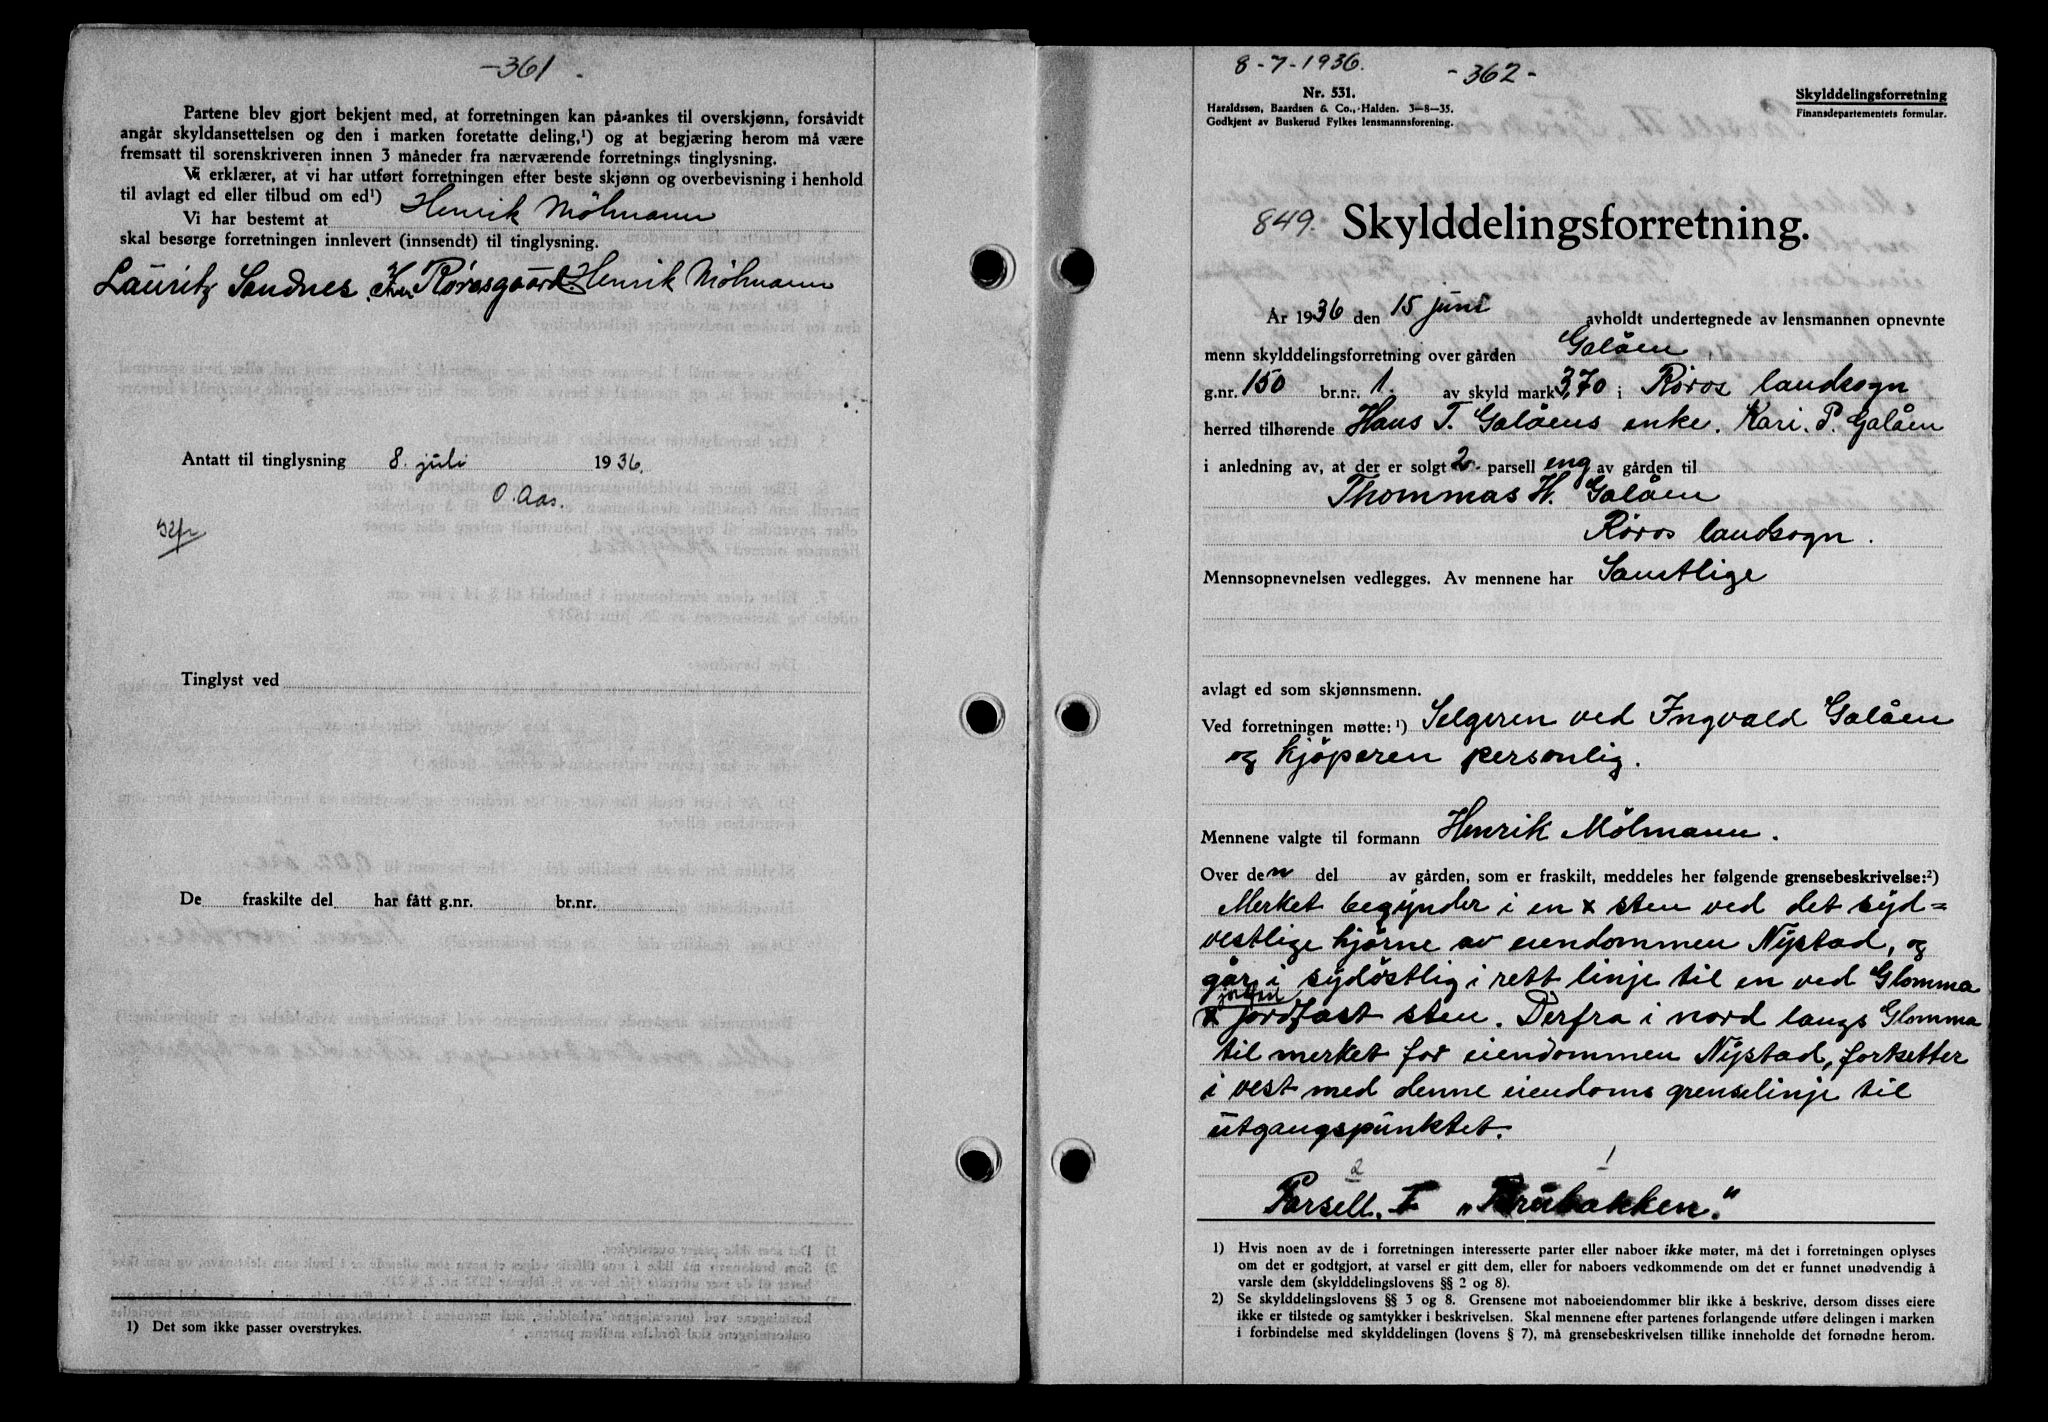 -361-
Partene blev gjort bekjent med, at forretningen kan på-ankes til overskjønn, forsåvidt
angår skyldansettelsen og den i marken foretatte deling,¹) og at begjæring herom må være
fremsatt til sorenskriveren innen 3 måneder fra nærværende forretnings tinglysning.
Vi erklærer, at vi har utført forretningen efter beste skjønn og overbevisning i henhold
til avlagt ed eller tilbud om ed¹)
Vi har bestemt at Henrik Mölmann
skal besørge forretningen innlevert (innsendt) til tinglysning.
Lauritz Sandnes, Røragaard. Henrik Mölmann
Antatt til tinglysning 8. juli 1936.
O. Aas.
Tinglyst ved
De fraskilte del har fått g.nr. br.nr.
1) Det som ikke passer overstrykes.
8-7-1936.
-362-
Nr. 531.
Haraldssen, Baardsen & Co., Halden. 3-8-35.
Godkjent av Buskerud Fylkes lensmannsforening.
Skylddelingsforretning
Finansdepartementets formular.
849. Skylddelingsforretning.
År 1936 den 15 juni avholdt undertegnede av lensmannen opnevnte
menn skylddelingsforretning over gården Galåen,
g.nr. 150 br.nr. 1. av skyld mark 3,70 i Røros landsogn
herred tilhørende Hans T. Galåens enke. Kari. P. Galåen
i anledning av, at der er solgt 2. parsell eng av gården til
Thommas H. Galåen
Røros landsogn.
Mennsopnevnelsen vedlegges. Av mennene har Samtlige
avlagt ed som skjønnsmenn.
Ved forretningen møtte:¹) Selgeren ved Ingvald Galåen
og kjöperen personlig.
Mennene valgte til formann Henrik Mölmann.
Over den del av gården, som er fraskilt, meddeles her følgende grensebeskrivelse:²)
Merket begynder i en x sten ved det syd=
vestlige hjørne av eiendommen Nystad, og
går i sydøstlig i rett linje til en ved Glomma
x jordfast sten. Derfra i nord langs Glomma
til merket for eiendommen Nystad, fortsetter
i vest med denne eiendoms grenselinje til
utgangspunktet.
2 1
Parsell. I „Brubakken."
1) Hvis noen av de i forretningen interesserte parter eller naboer ikke møter, må det i forretningen oplyses
om det er godtgjort, at varsel er gitt dem, eller for naboers vedkommende om det er funnet unødvendig å
varsle dem (skylddelingslovens §§ 2 og 8).
2) Se skylddelingslovens §§ 3 og 8. Grensene mot naboeiendommer blir ikke å beskrive, dersom disses eiere
ikke er tilstede og samtykker i beskrivelsen. Skal mennene efter partenes forlangende utføre delingen i marken
i forbindelse med skylddelingen (lovens § 7), må grensebeskrivelsen tillike inneholde det fornødne herom.